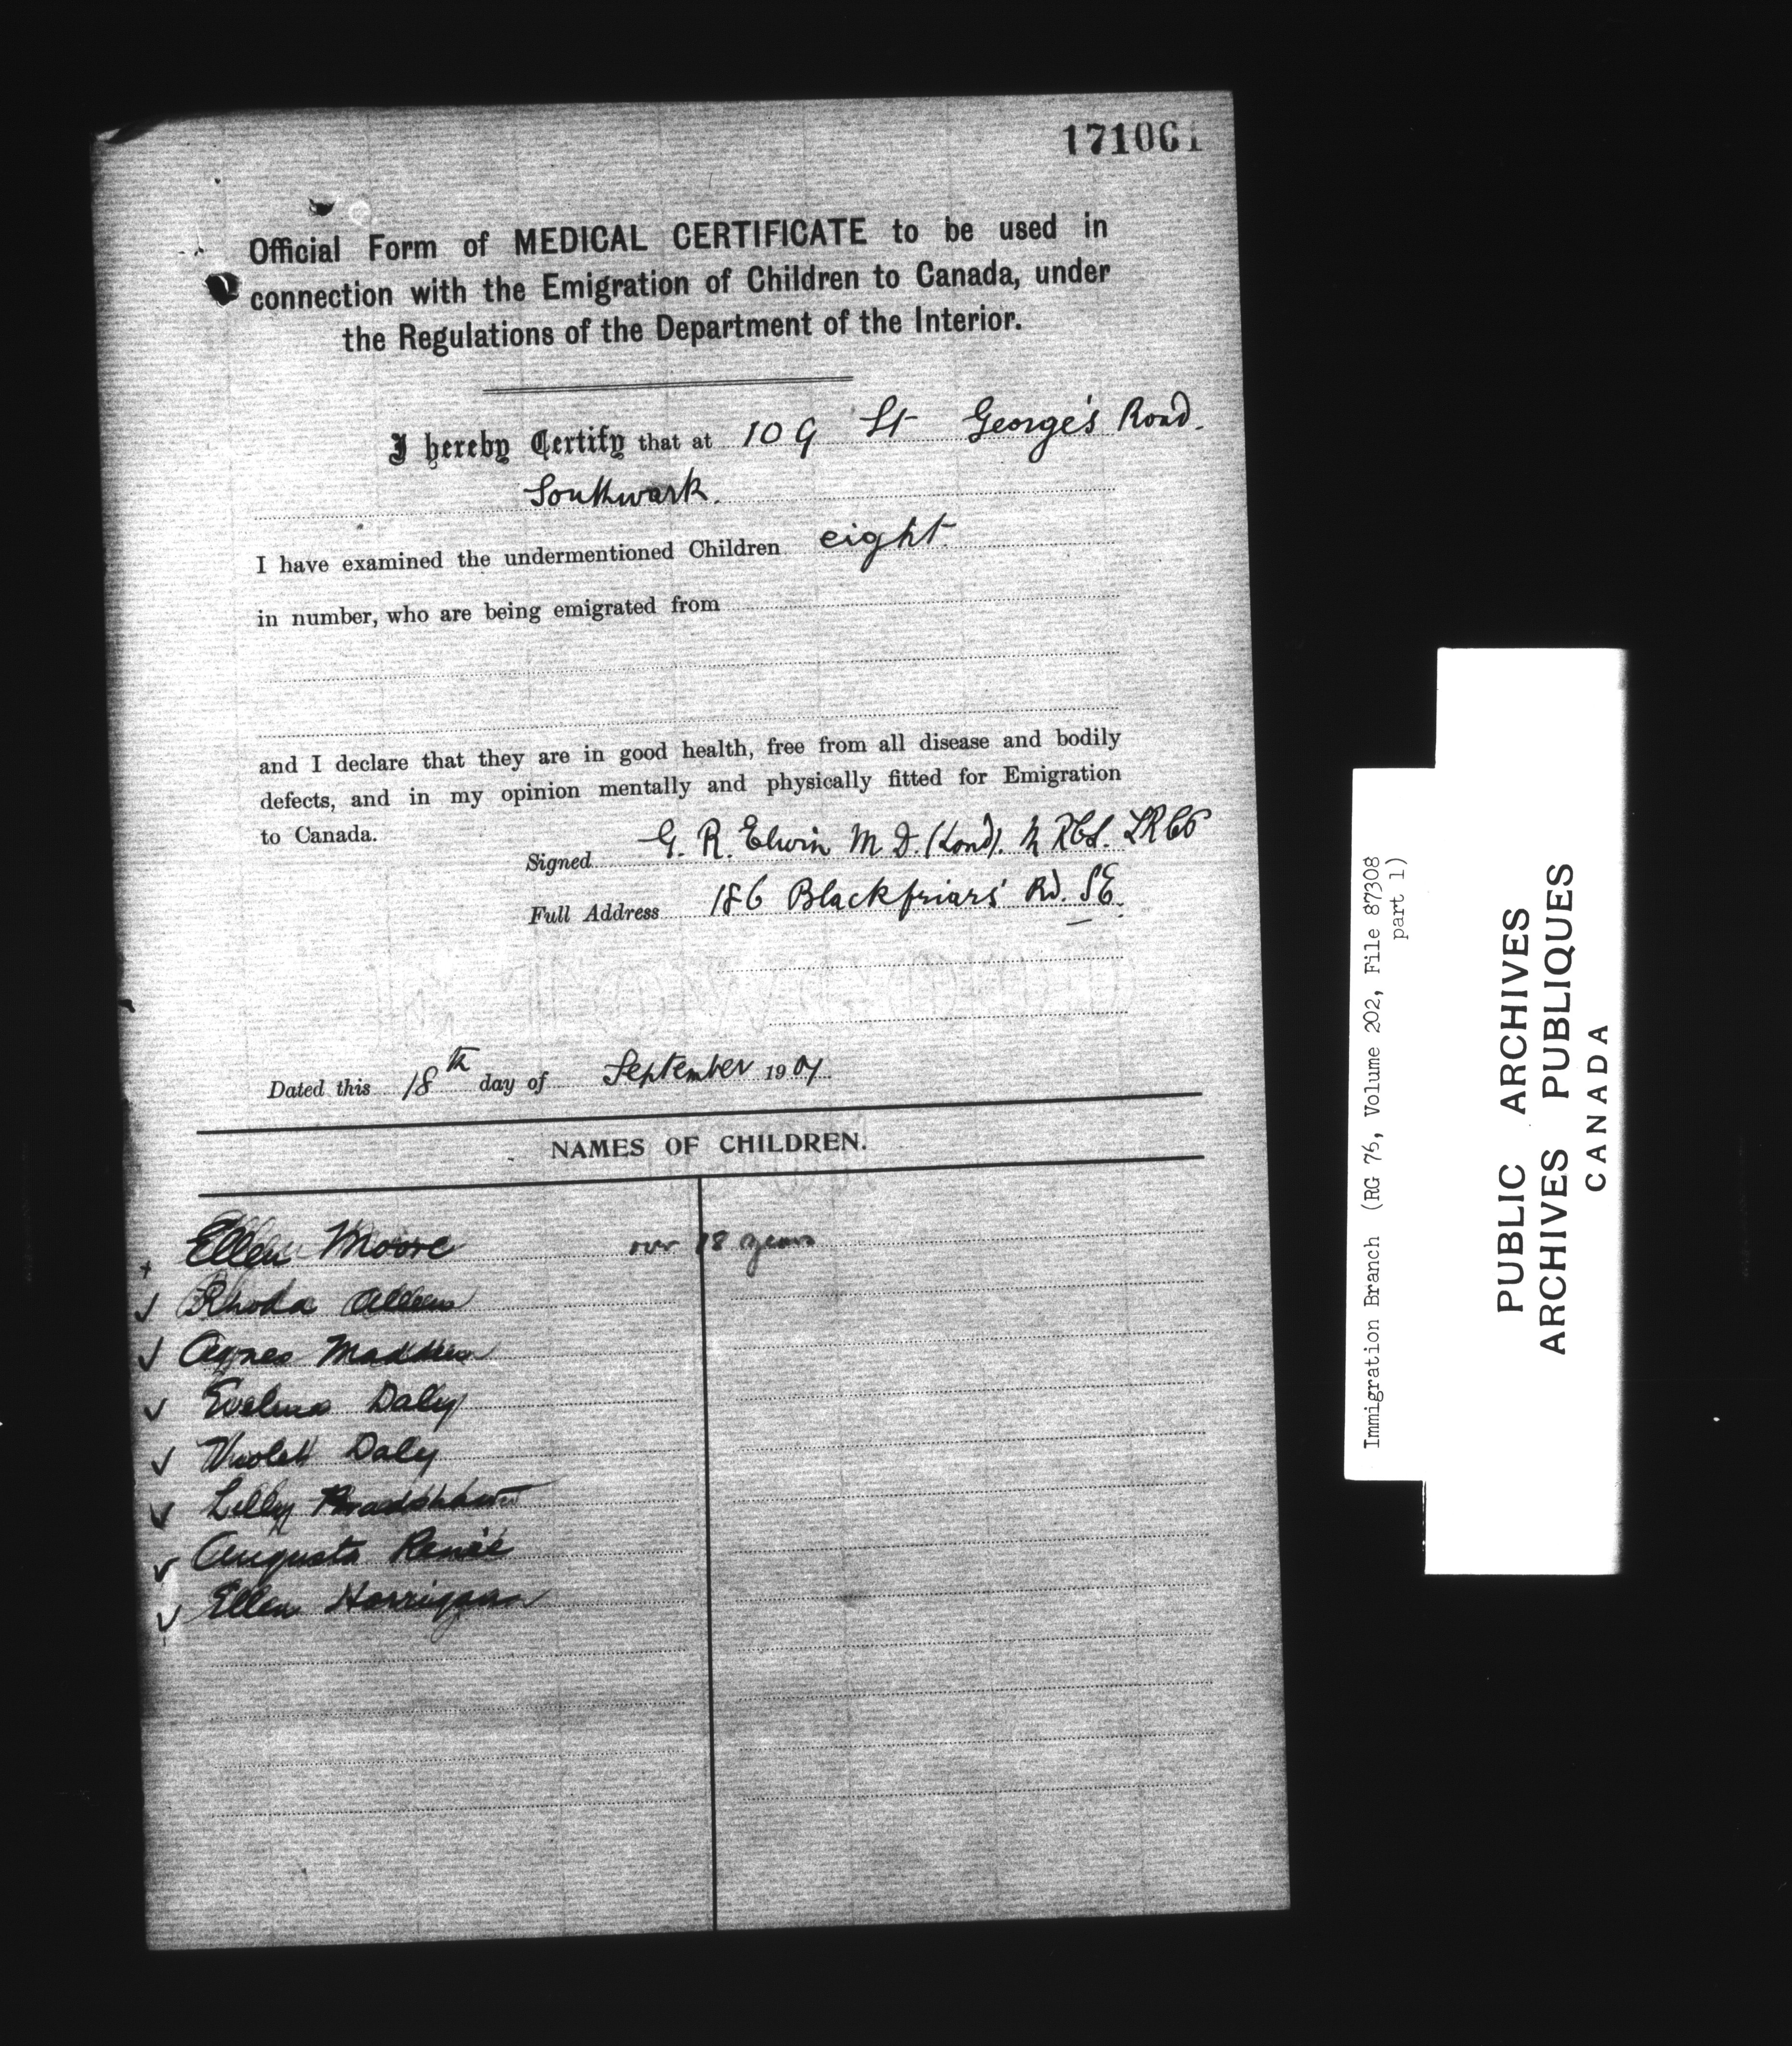 171061
Official Form of MEDICAL CERTIFICATE to be used in
connection with the Emigration of Children to Canada, under
the Regulations of the Department of the Interior.
I hereby Certify that at 109 St George's Road.
Southwark.
I have examined the undermentioned Children eight
in number, who are being emigrated from
and I declare that they are in good health, free from all disease and bodily
defects, and in my opinion mentally and physically fitted for Emigration
to Canada.
Signed G. R. Elwin M.D. (Lond). MRCS. LRCP
Full Address 186 Blackfriars' Rd. SE.
Dated this 18th day of September 1907
NAMES OF CHILDREN.
+ Ellen Moore over 18 years
✓ Rhoda Allen
✓ Agnes Madden
✓ Evelina Daly
✓ Violet Daly
✓ Lilly Bradshaw
✓ Augusta
✓ Ellen Horrigan
Immigration Branch (RG 76, Volume 202, File 87308
part 1)
PUBLIC ARCHIVES
ARCHIVES PUBLIQUES
CANADA